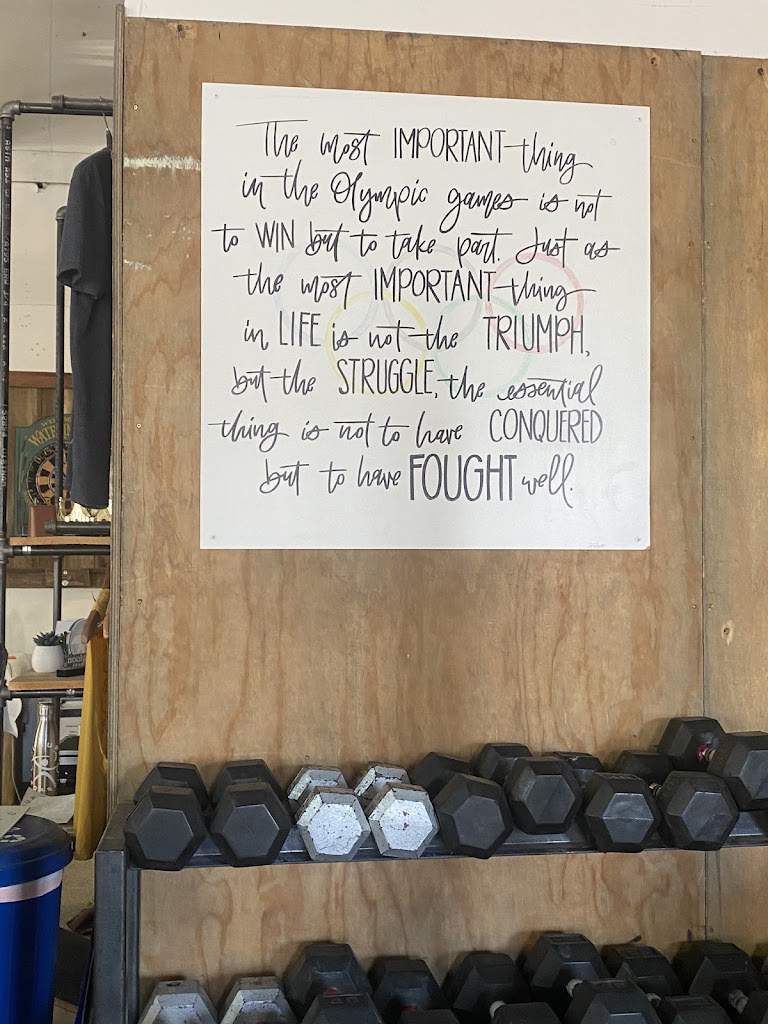 The most IMPORTANT thing
in the Olympic games is not
to WIN but to take part. Just as
the most IMPORTANT thing
in LIFE is not the TRIUMPH,
but the STRUGGLE, the essential
thing is not to have CONQUERED
but to have FOUGHT well.